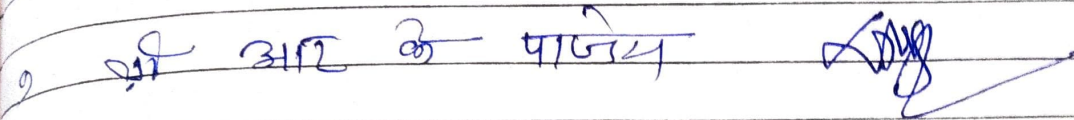 १ श्री आर के पाण्डेय